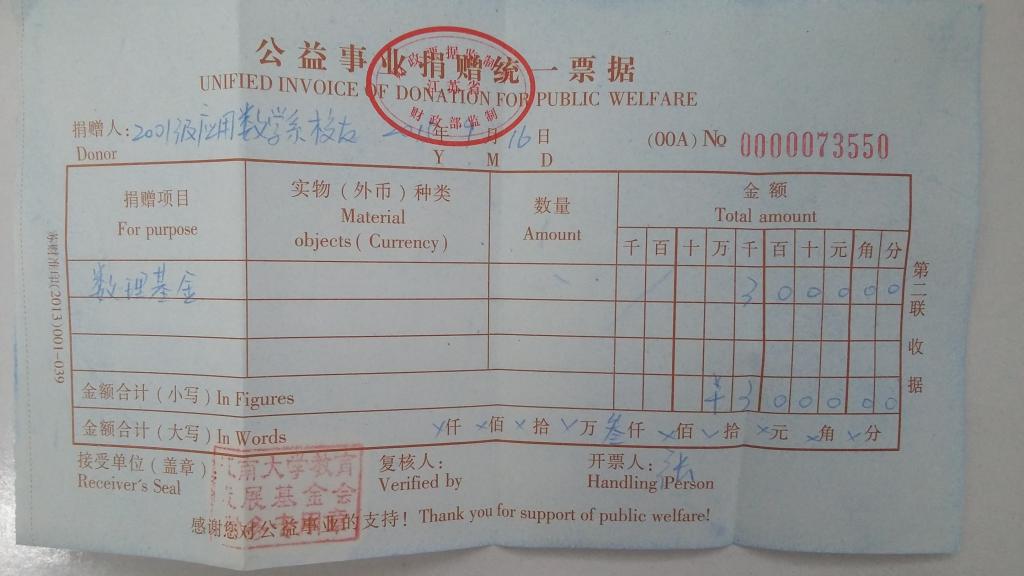 公益事业捐赠统一票据
UNIFIED INVOICE OF DONATION FOR PUBLIC WELFARE
江苏省
财政部监制
捐赠人: 2001级应用数学系校友 年 9 月 16 日 (00A) No 0000073550
Donor Y M D
捐赠项目 实物(外币)种类 数量 金额
For purpose Material objects( Currency) Amount Total amount
千 百 十 万 千 百 十 元 角 分
数理基金 3 0 0 0 0 0
金额合计(小写) In Figures ¥ 3 0 0 0 0 0
金额合计(大写) In Words ×仟 ×佰 ×拾 ×万 叁仟 ×佰 ×拾 ×元 ×角 ×分
接受单位(盖章) 复核人: 开票人: 张
Receiver's Seal Verified by Handling Person
江南大学教育
发展基金会
感谢您对公益事业的支持! Thank you for support of public welfare!
第二联 收据
(2013)001-039